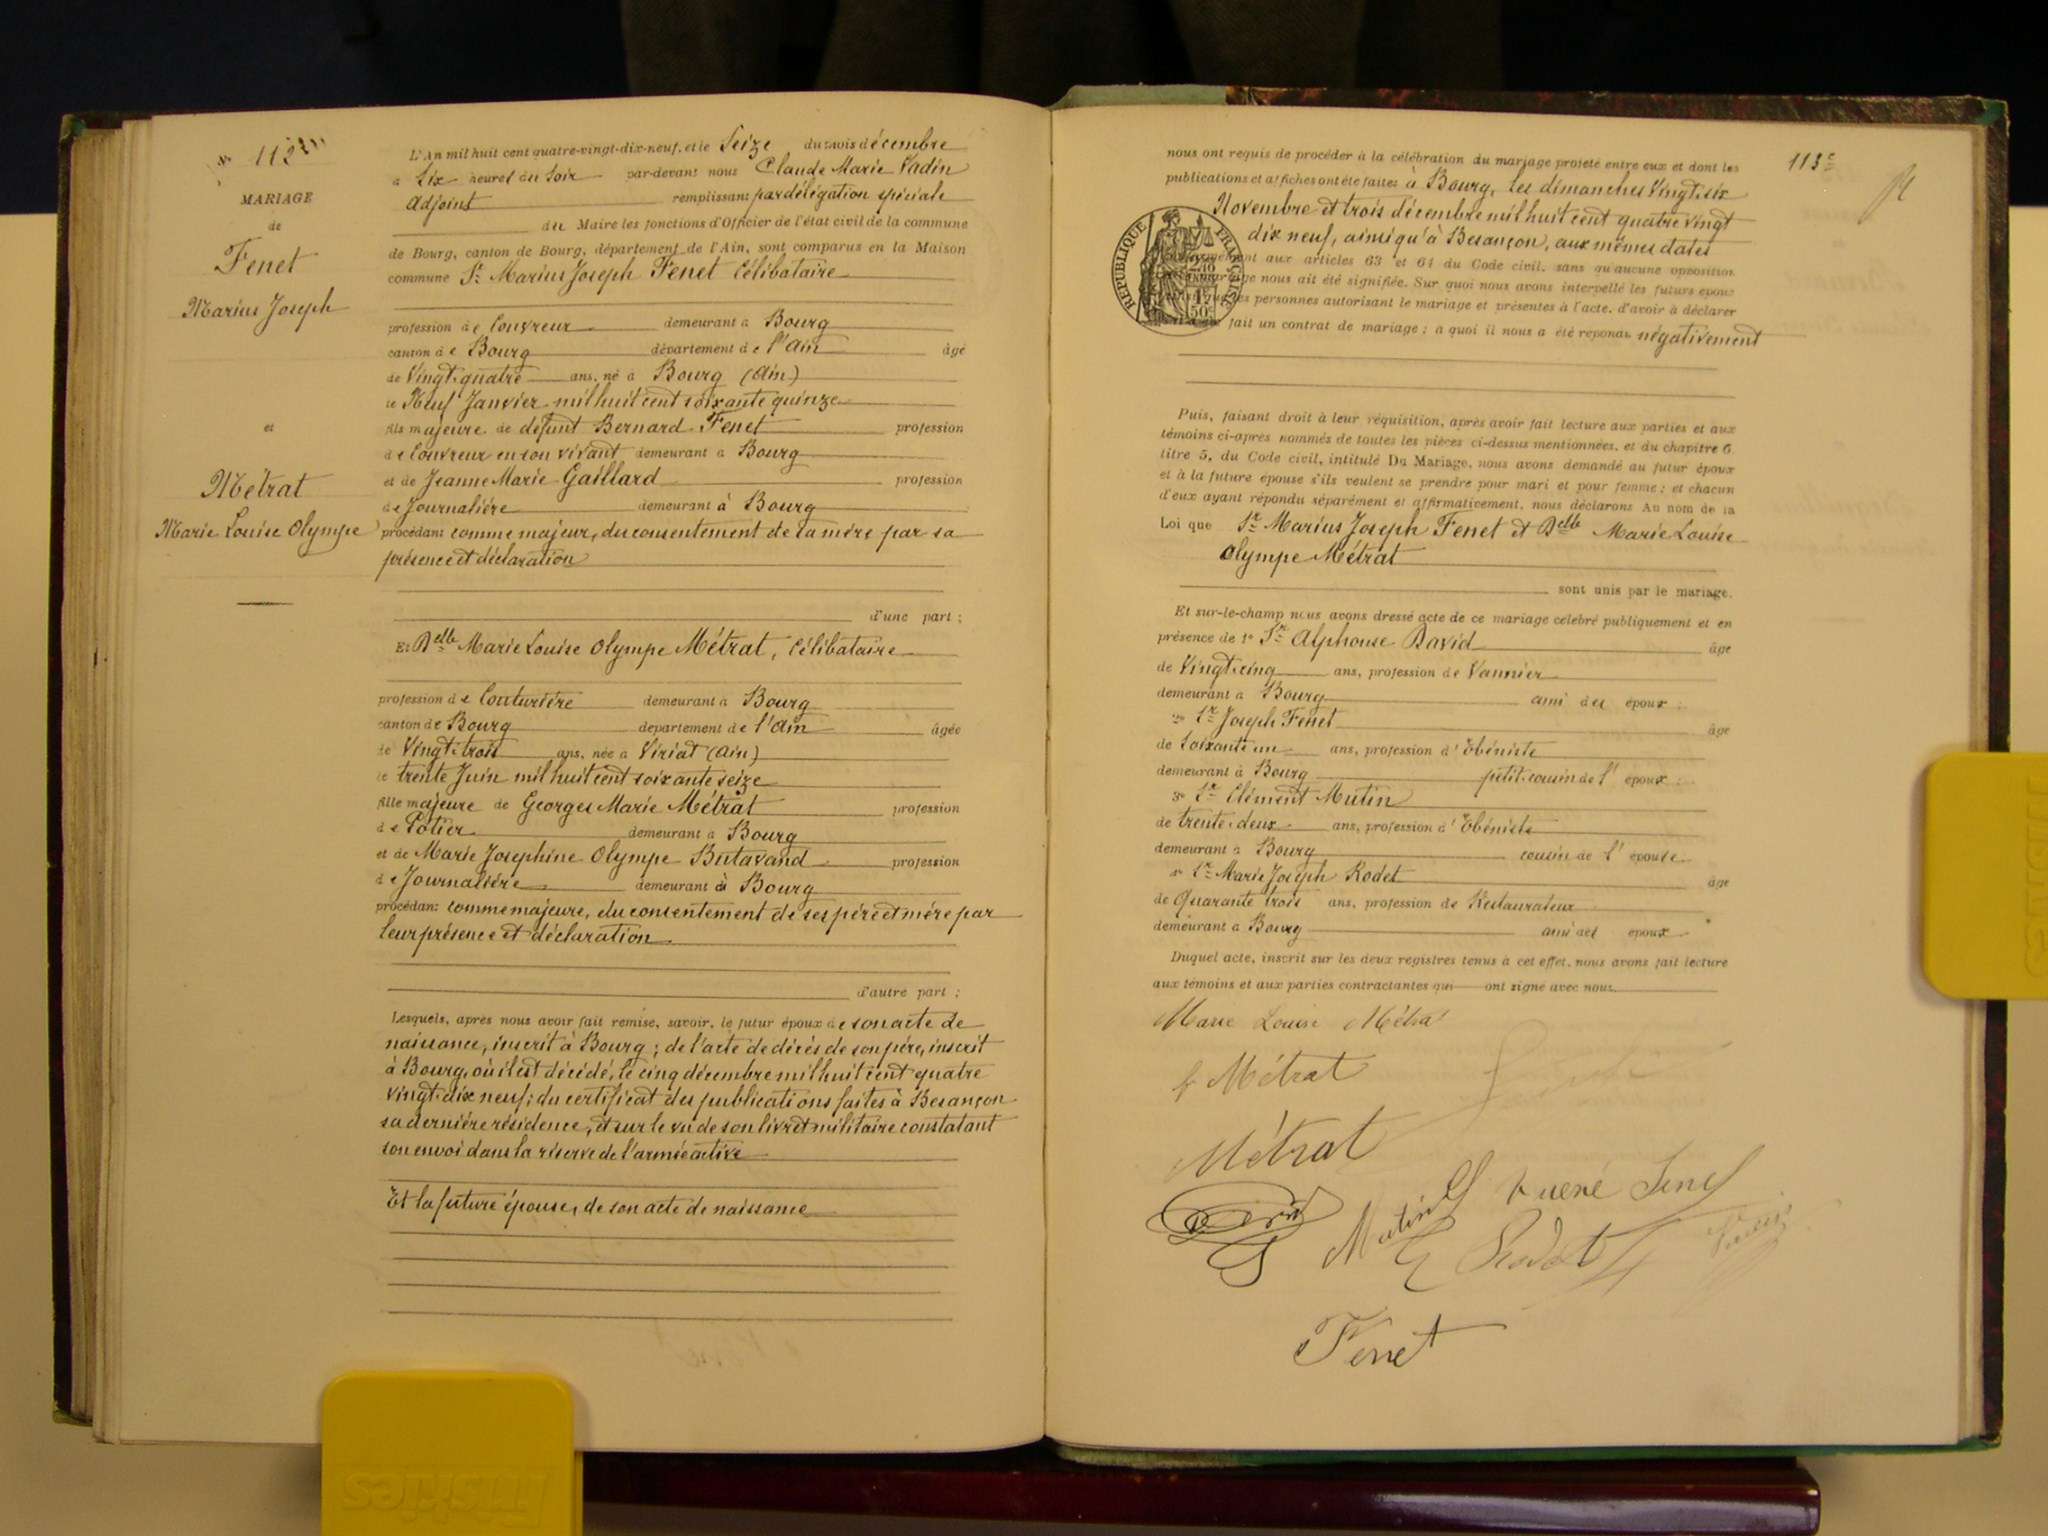 No 112
MARIAGE
de
Fenet
Marius Joseph
et
Métrat
Marie Louise Olympe
L'An mil huit cent quatre-vingt-dix-neuf, et le Seize du mois décembre
à Six heures du Soir par-devant nous Claude Marie Vadin
Adjoint remplissant par délégation spéciale
du Maire les fonctions d'Officier de l'état civil de la commune
de Bourg, canton de Bourg, département de l'Ain, sont comparus en la Maison
commune Sr Marius Joseph Fenet célibataire
profession de Couvreur demeurant à Bourg
canton de Bourg département de l'Ain âgé
de Vingt-quatre ans, né à Bourg (Ain)
le Neuf Janvier mil huit cent soixante quinze
fils majeure de défunt Bernard Fenet profession
de Couvreur en son vivant demeurant à Bourg
et de Jeanne Marie Gaillard profession
de Journalière demeurant à Bourg
procédant comme majeur, du consentement de sa mère par sa
présence et déclaration
d'une part ;
Et Delle Marie Louise Olympe Métrat, célibataire
profession de Couturière demeurant à Bourg
canton de Bourg département de l'Ain âgée
de Vingt-trois ans, née à Viriat (Ain)
le trente Juin mil huit cent soixante seize
fille majeure de Georges Marie Métrat profession
de Potier demeurant à Bourg
et de Marie Josephine Olympe Butavand profession
de Journalière demeurant à Bourg
procédant comme majeure, du consentement de ses père et mère par
leur présence et déclaration
d'autre part ;
Lesquels, après nous avoir fait remise, savoir, le futur époux de son acte de
naissance, inscrit à Bourg ; de l'acte de décès de son père, inscrit
à Bourg, où il est décédé, le cinq décembre mil huit cent quatre
vingt-dix neuf ; du certificat des publications faites à Besançon
sa dernière résidence, et sur le vu de son livret militaire constatant
son envoi dans la réserve de l'armée active
Et la future épouse, de son acte de naissance
113e
nous ont requis de procéder à la célébration du mariage projeté entre eux et dont les
publications et affiches ont été faites à Bourg, les dimanches Vingt-six
Novembre et trois décembre mil huit cent quatre vingt
dix neuf, ainsi qu'à Besançon, aux mêmes dates
RÉPUBLIQUE FRANÇAISE
aux articles 63 et 64 du Code civil, sans qu'aucune opposition
nous ait été signifiée. Sur quoi nous avons interpellé les futurs époux
personnes autorisant le mariage et présentes à l'acte, d'avoir à déclarer
fait un contrat de mariage ; à quoi il nous a été répondu négativement
Puis, faisant droit à leur réquisition, après avoir fait lecture aux parties et aux
témoins ci-après nommés de toutes les pièces ci-dessus mentionnées, et du chapitre 6,
titre 5, du Code civil, intitulé Du Mariage, nous avons demandé au futur époux
et à la future épouse s'ils veulent se prendre pour mari et pour femme ; et chacun
d'eux ayant répondu séparément et affirmativement, nous déclarons Au nom de la
Loi que Sr Marius Joseph Fenet et Delle Marie Louise
Olympe Métrat
sont unis par le mariage.
Et sur-le-champ nous avons dressé acte de ce mariage célébré publiquement et en
présence de 1o Sr Alphonse David âgé
de Vingt-cinq ans, profession de Vannier
demeurant à Bourg ami des époux ;
2o Sr Joseph Fenet âgé
de soixante un ans, profession d'Ebéniste
demeurant à Bourg petit cousin de l'époux ;
3o Sr Clément Mutin
de trente-deux ans, profession d'Ebéniste
demeurant à Bourg cousin de l'épouse
Sr Marie Joseph Rodet âgé
de Quarante trois ans, profession de Restaurateur
demeurant à Bourg ami des époux
Duquel acte, inscrit sur les deux registres tenus à cet effet, nous avons fait lecture
aux témoins et aux parties contractantes qui ont signé avec nous.
Marie Louise Métra
f Métrat
Métrat
Mutin
Rodet
Fenet